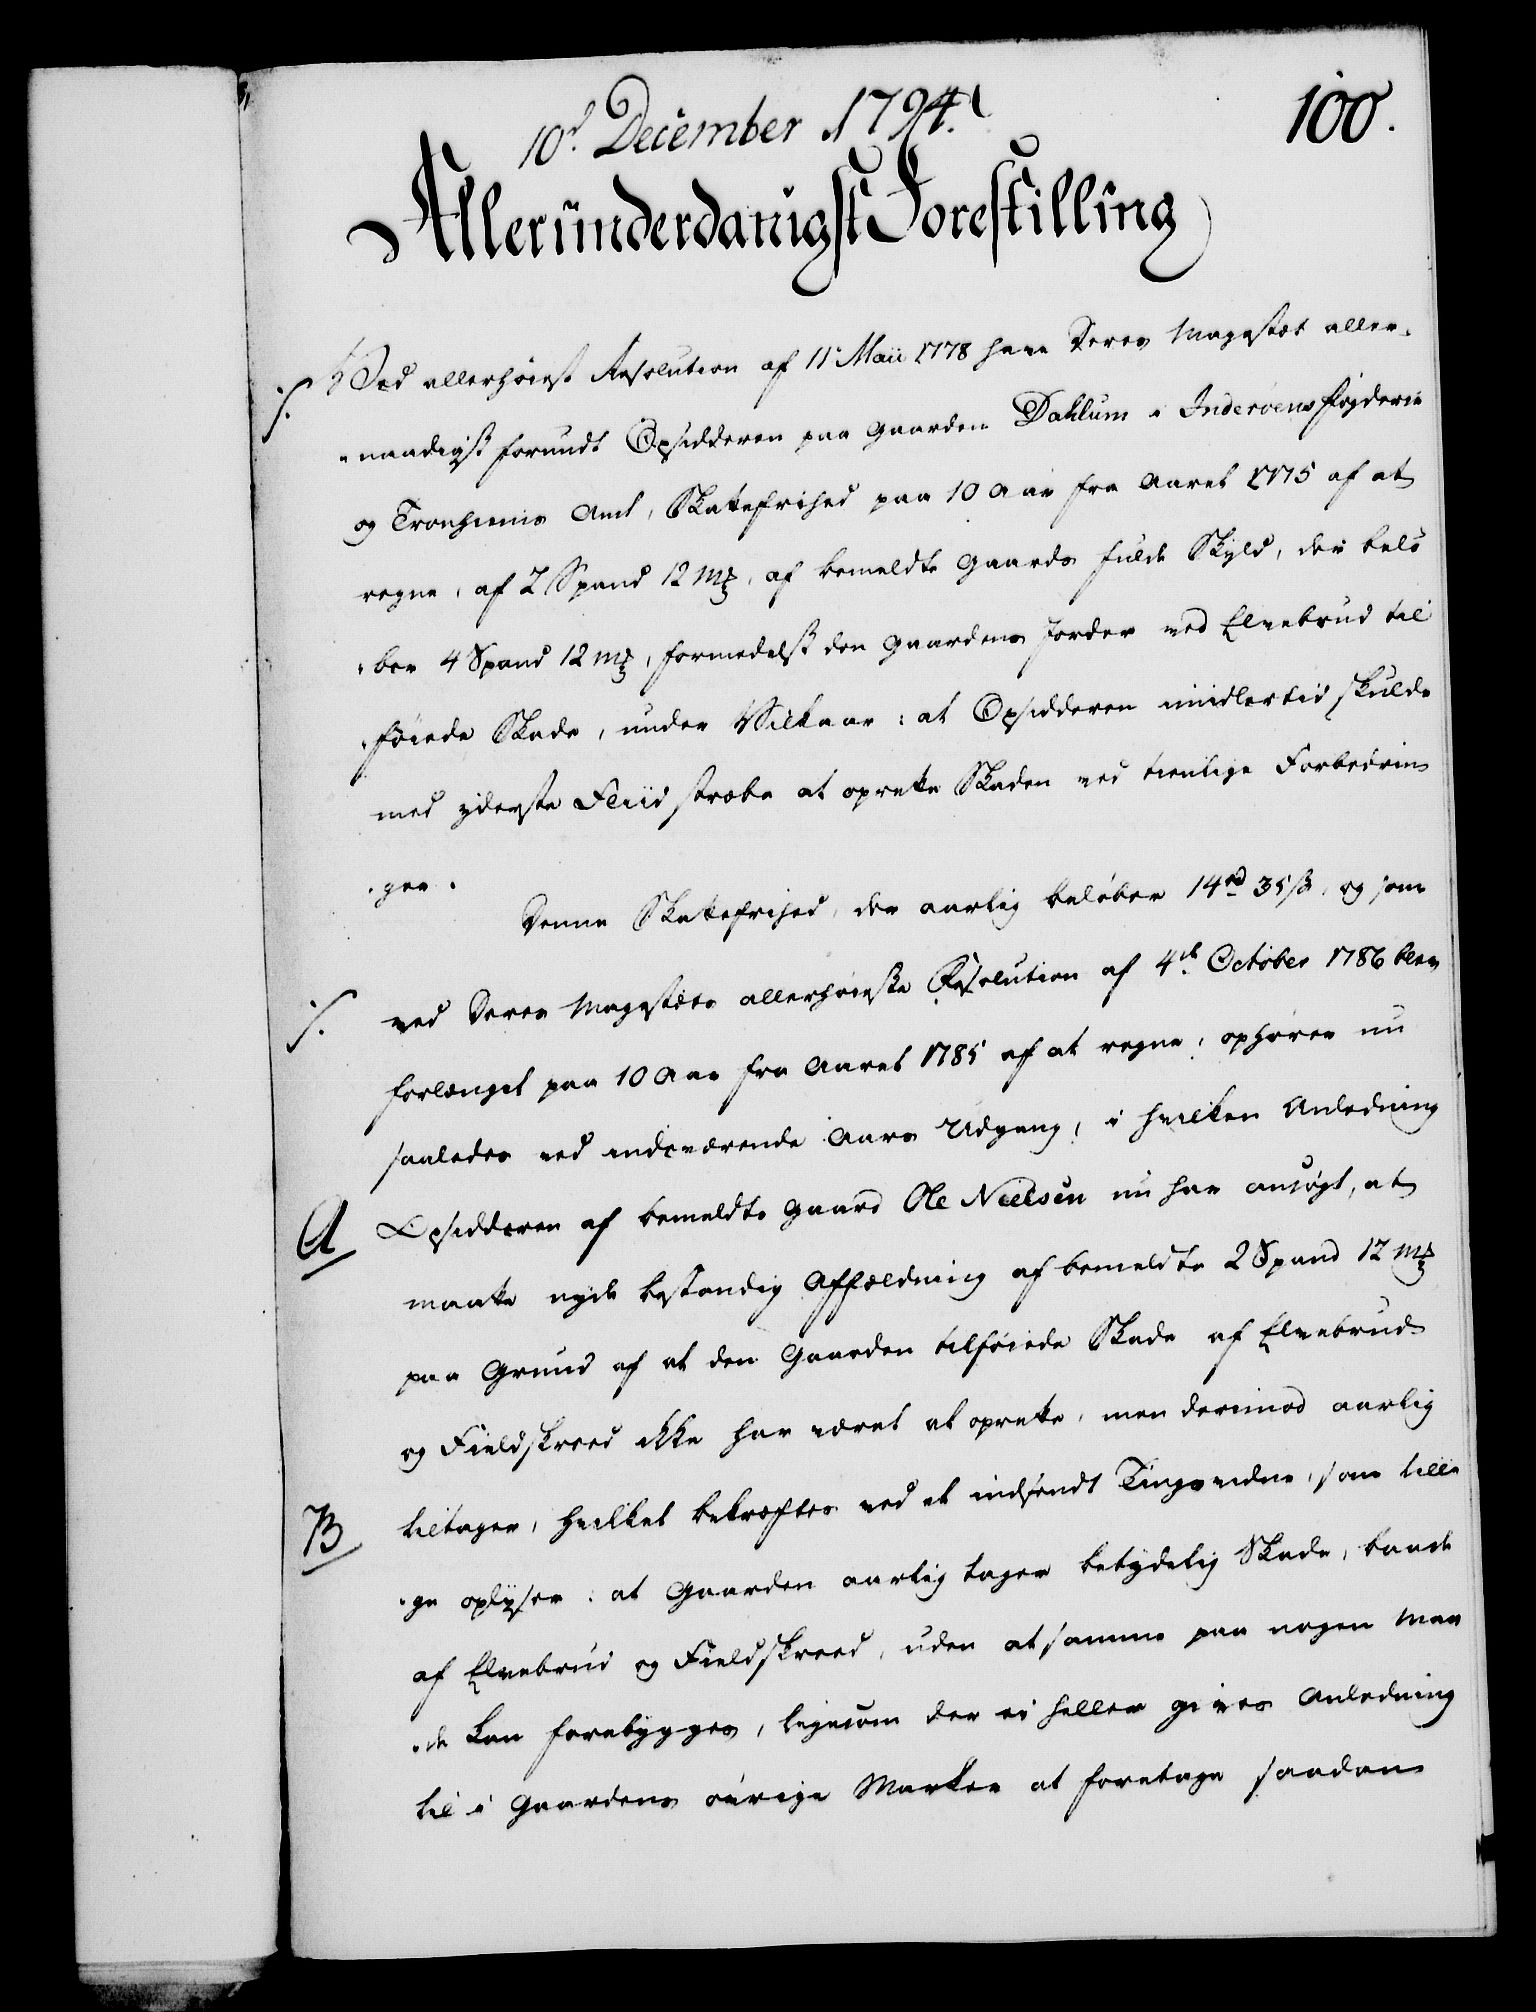 10.d December 1794.
100.
Allerunderdanigst Forestilling
·/. Ved allerhøiest Resolution af 11. Maii 1778 have Deres Majestæt aller-
-naadigst forundt Opsidderen paa Gaarden Dahlum i Inderøens Fogderie
og Tronhiems Amt, Skattefrihed paa 10 Aar fra Aaret 1775 af at
regne, af 2 Spand 12 Mkl. af bemeldte Gaards fulde Skyld, der belø
-ber 4 Spand 12 Mkl., formedelst den Gaardens Jorder ved Elvebrud til
-føiede Skade, under Vilkaar: at Opsidderen imidlertid skulde
med yderste Fliid stræbe at oprette Skaden ved tienlige Forbedrin
-ger.
Denne Skattefrihed, der aarlig beløber 14 rd 35 ß. og som
·/. ved Deres Majestæts allerhøieste Resolution af 4de October 1786 blev
forlænget paa 10 Aar fra Aaret 1785 af at regne, ophører nu
saaledes ved indeværende Aars Udgang, i hvilken Anledning
A Opsidderen af bemeldte Gaard Ole Nielsen nu har ansøgt, at
maatte nyde bestandig Affældning af bemeldte 2 Spand 12 Mkl.
paa Grund af at den Gaarden tilføiede Skade af Elvebrud
og Fieldskreed ikke har været at oprette, men derimod aarlig
B tiltager, hvilket bekræftes ved et indsendt Tingsvidne, som tilli
-ge oplyser: at Gaarden aarlig tager betydelig Skade, baade
af Elvebrud og Fieldskreed, uden at samme paa nogen Maa
-de kan forebygges, ligesom der ei heller gives Anledning
til i Gaardens øvrige Marker at foretage saadan